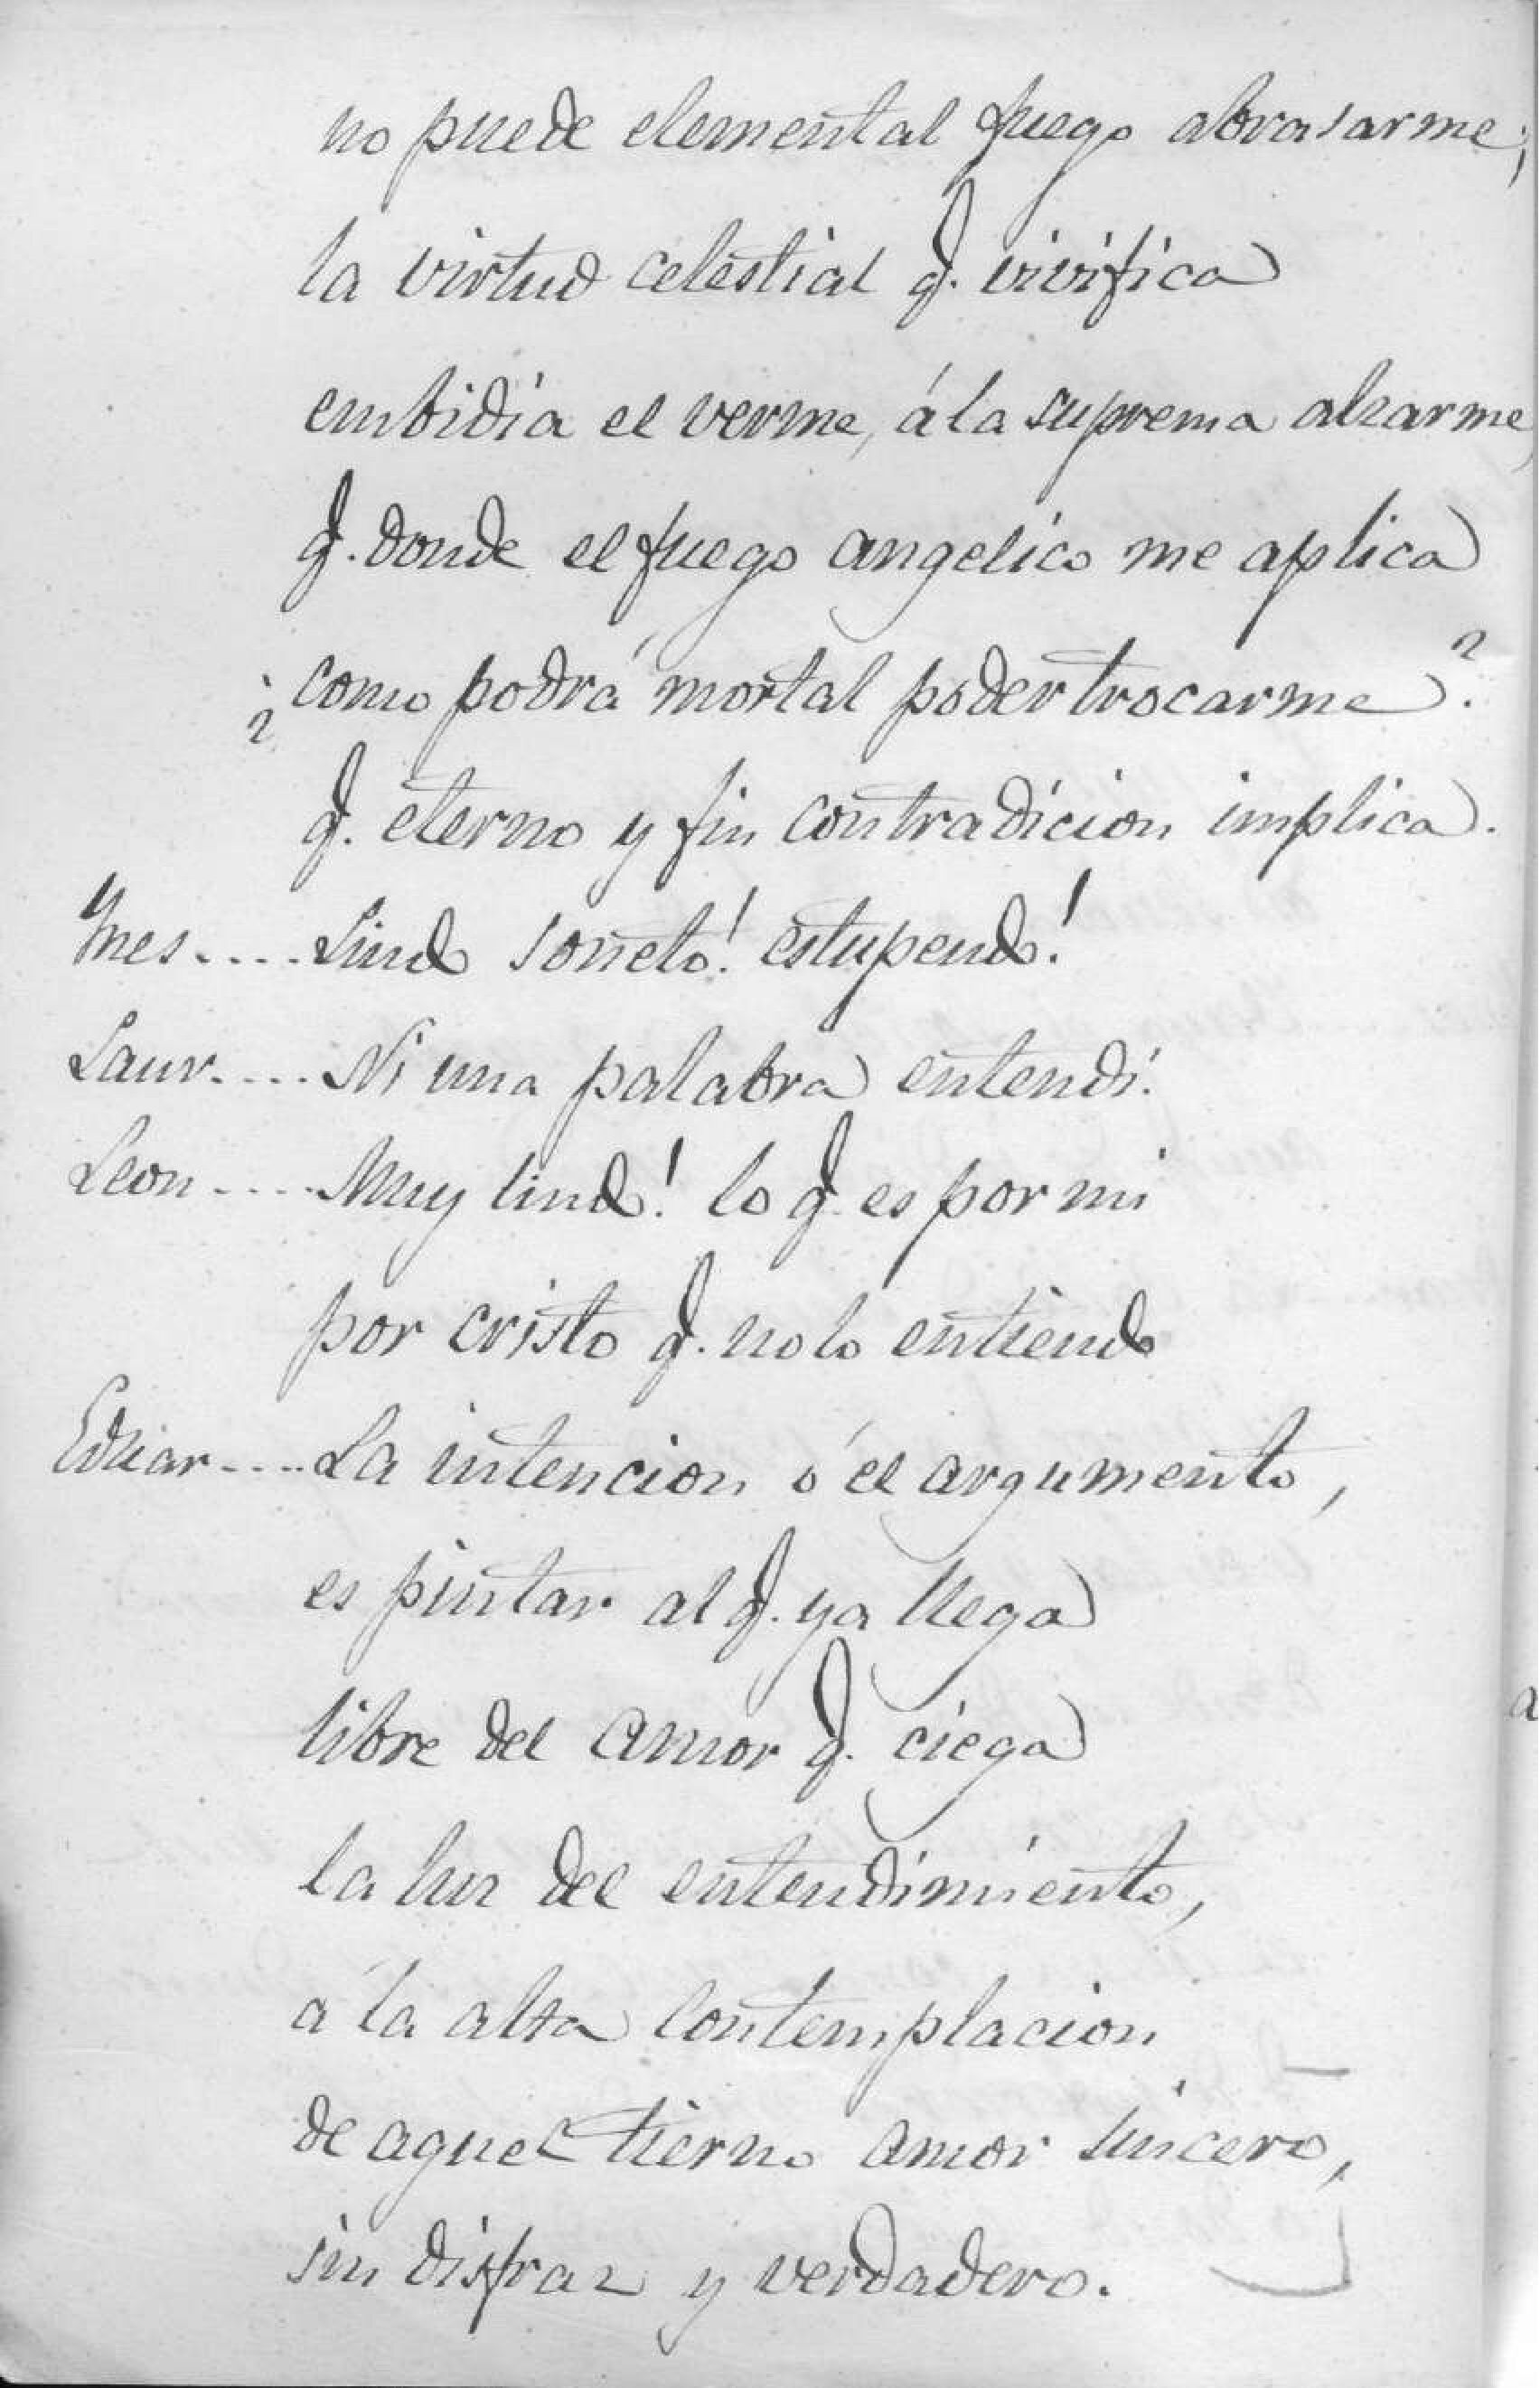 no puede elemental fuego abrasarme;
la virtud celestial q. vivifica
embidia el verme, á la suprema alzarme,
q. donde el fuego angelico me aplica
¿como podrá mortal poder trocarme?
q. eterno y fin contradicion implica.
Ynes.... Lindo soneto! estupendo!
Laur.... Ni una palabra entendí.
Leon.... Muy lindo! lo q. es por mi
por cristo q. no lo entiendo
.... La intencion ó el argumento,
es pintar al q. ya llega
libre del amor q. ciega
la luz del entendimiento,
a la alta contemplacion
de aquel tierno amor sincero,
sin disfraz y verdadero.